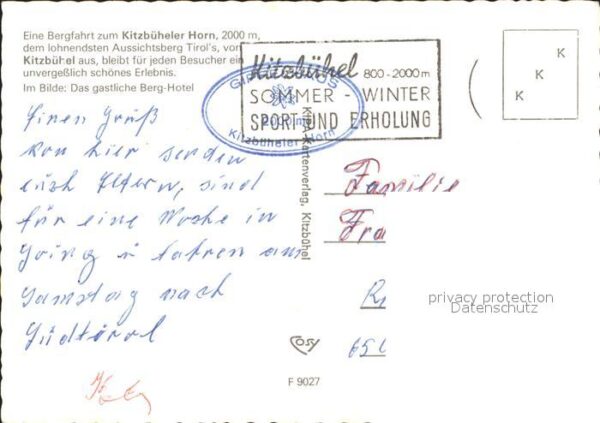 Eine Bergfahrt zum Kitzbüheler Horn, 2000 m,
dem lohnendsten Aussichtsberg Tirol's, von
Kitzbühel aus, bleibt für jeden Besucher ein
unvergeßlich schönes Erlebnis.
Im Bilde: Das gastliche Berg-Hotel
Kitzbühel 800-2000 m
SOMMER - WINTER
SPORT UND ERHOLUNG
2000 m
Kitzbüheler Horn
K
K
K
Einen Gruß
von hier senden
euch Eltern, sind
für eine Woche in
Going u fahren am
Samstag nach
Südtirol
KIPA-Kartenverlag, Kitzbühel
Familie
Fra
privacy protection
Datenschutz
COSY
F 9027